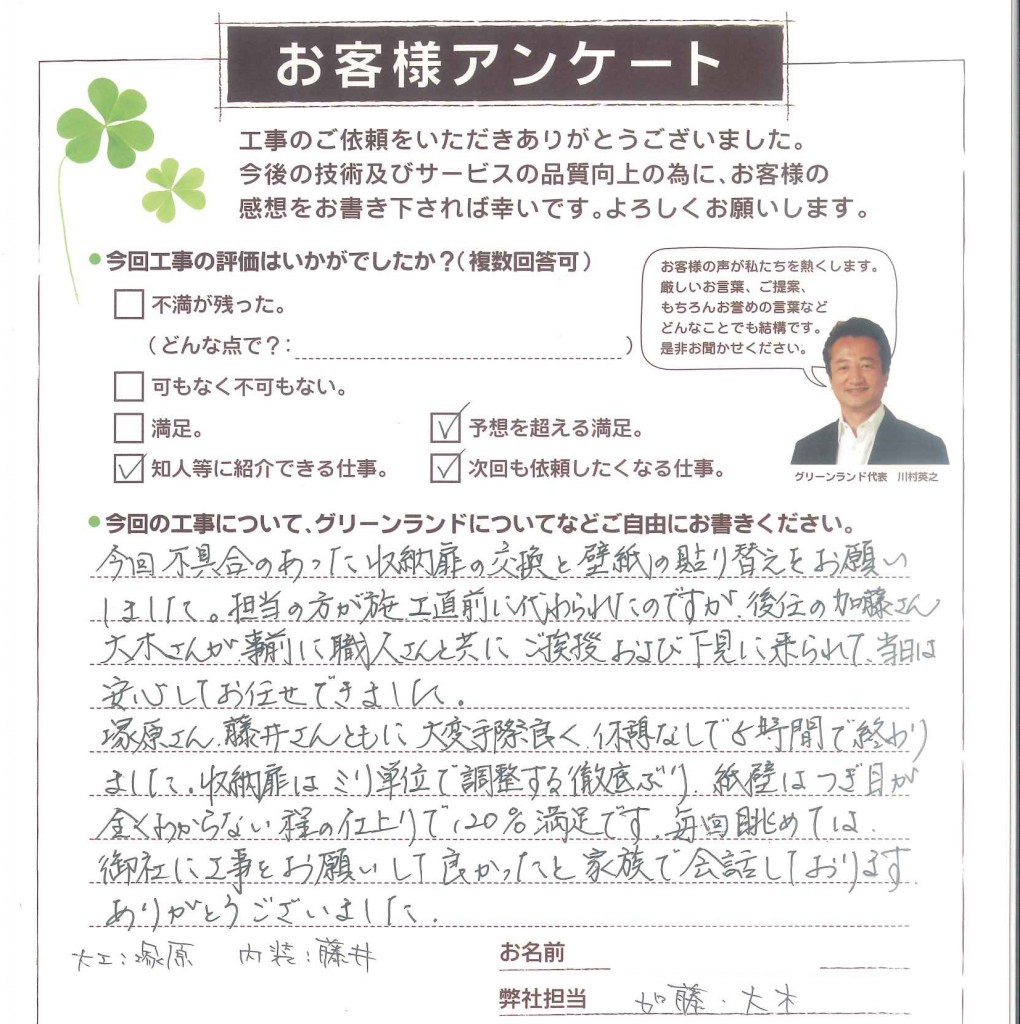 お客様アンケート
工事のご依頼をいただきありがとうございました。
今後の技術及びサービスの品質向上の為に、お客様の
感想をお書き下されば幸いです。よろしくお願いします。
今回工事の評価はいかがでしたか？（複数回答可）
不満が残った。
（どんな点で？：　）
可もなく不可もない。
満足。
予想を超える満足。
知人等に紹介できる仕事。
次回も依頼したくなる仕事。
お客様の声が私たちを熱くします。
厳しいお言葉、ご提案、
もちろんお誉めの言葉など
どんなことでも結構です。
是非お聞かせください。
グリーンランド代表　川村英之
今回の工事について、グリーンランドについてなどご自由にお書きください。
今回不具合のあった収納扉の交換と壁紙の貼り替えをお願い
しました。担当の方が施工直前に代わられたのですが、後任の加藤さん
大木さんが事前に職人さんと共にご挨拶および下見に来られて、当日は
安心してお任せできました。
塚原さん、藤井さんともに大変手際良く、休憩なしで5時間で終わり
ました。収納扉はミリ単位で調整する徹底ぶり、紙壁はつぎ目が
全くわからない程の仕上りで120%満足です。毎回眺めては、
御社に工事をお願いして良かったと家族で会話しております
ありがとうございました。
大工：塚原　内装：藤井
お名前
弊社担当　加藤・大木